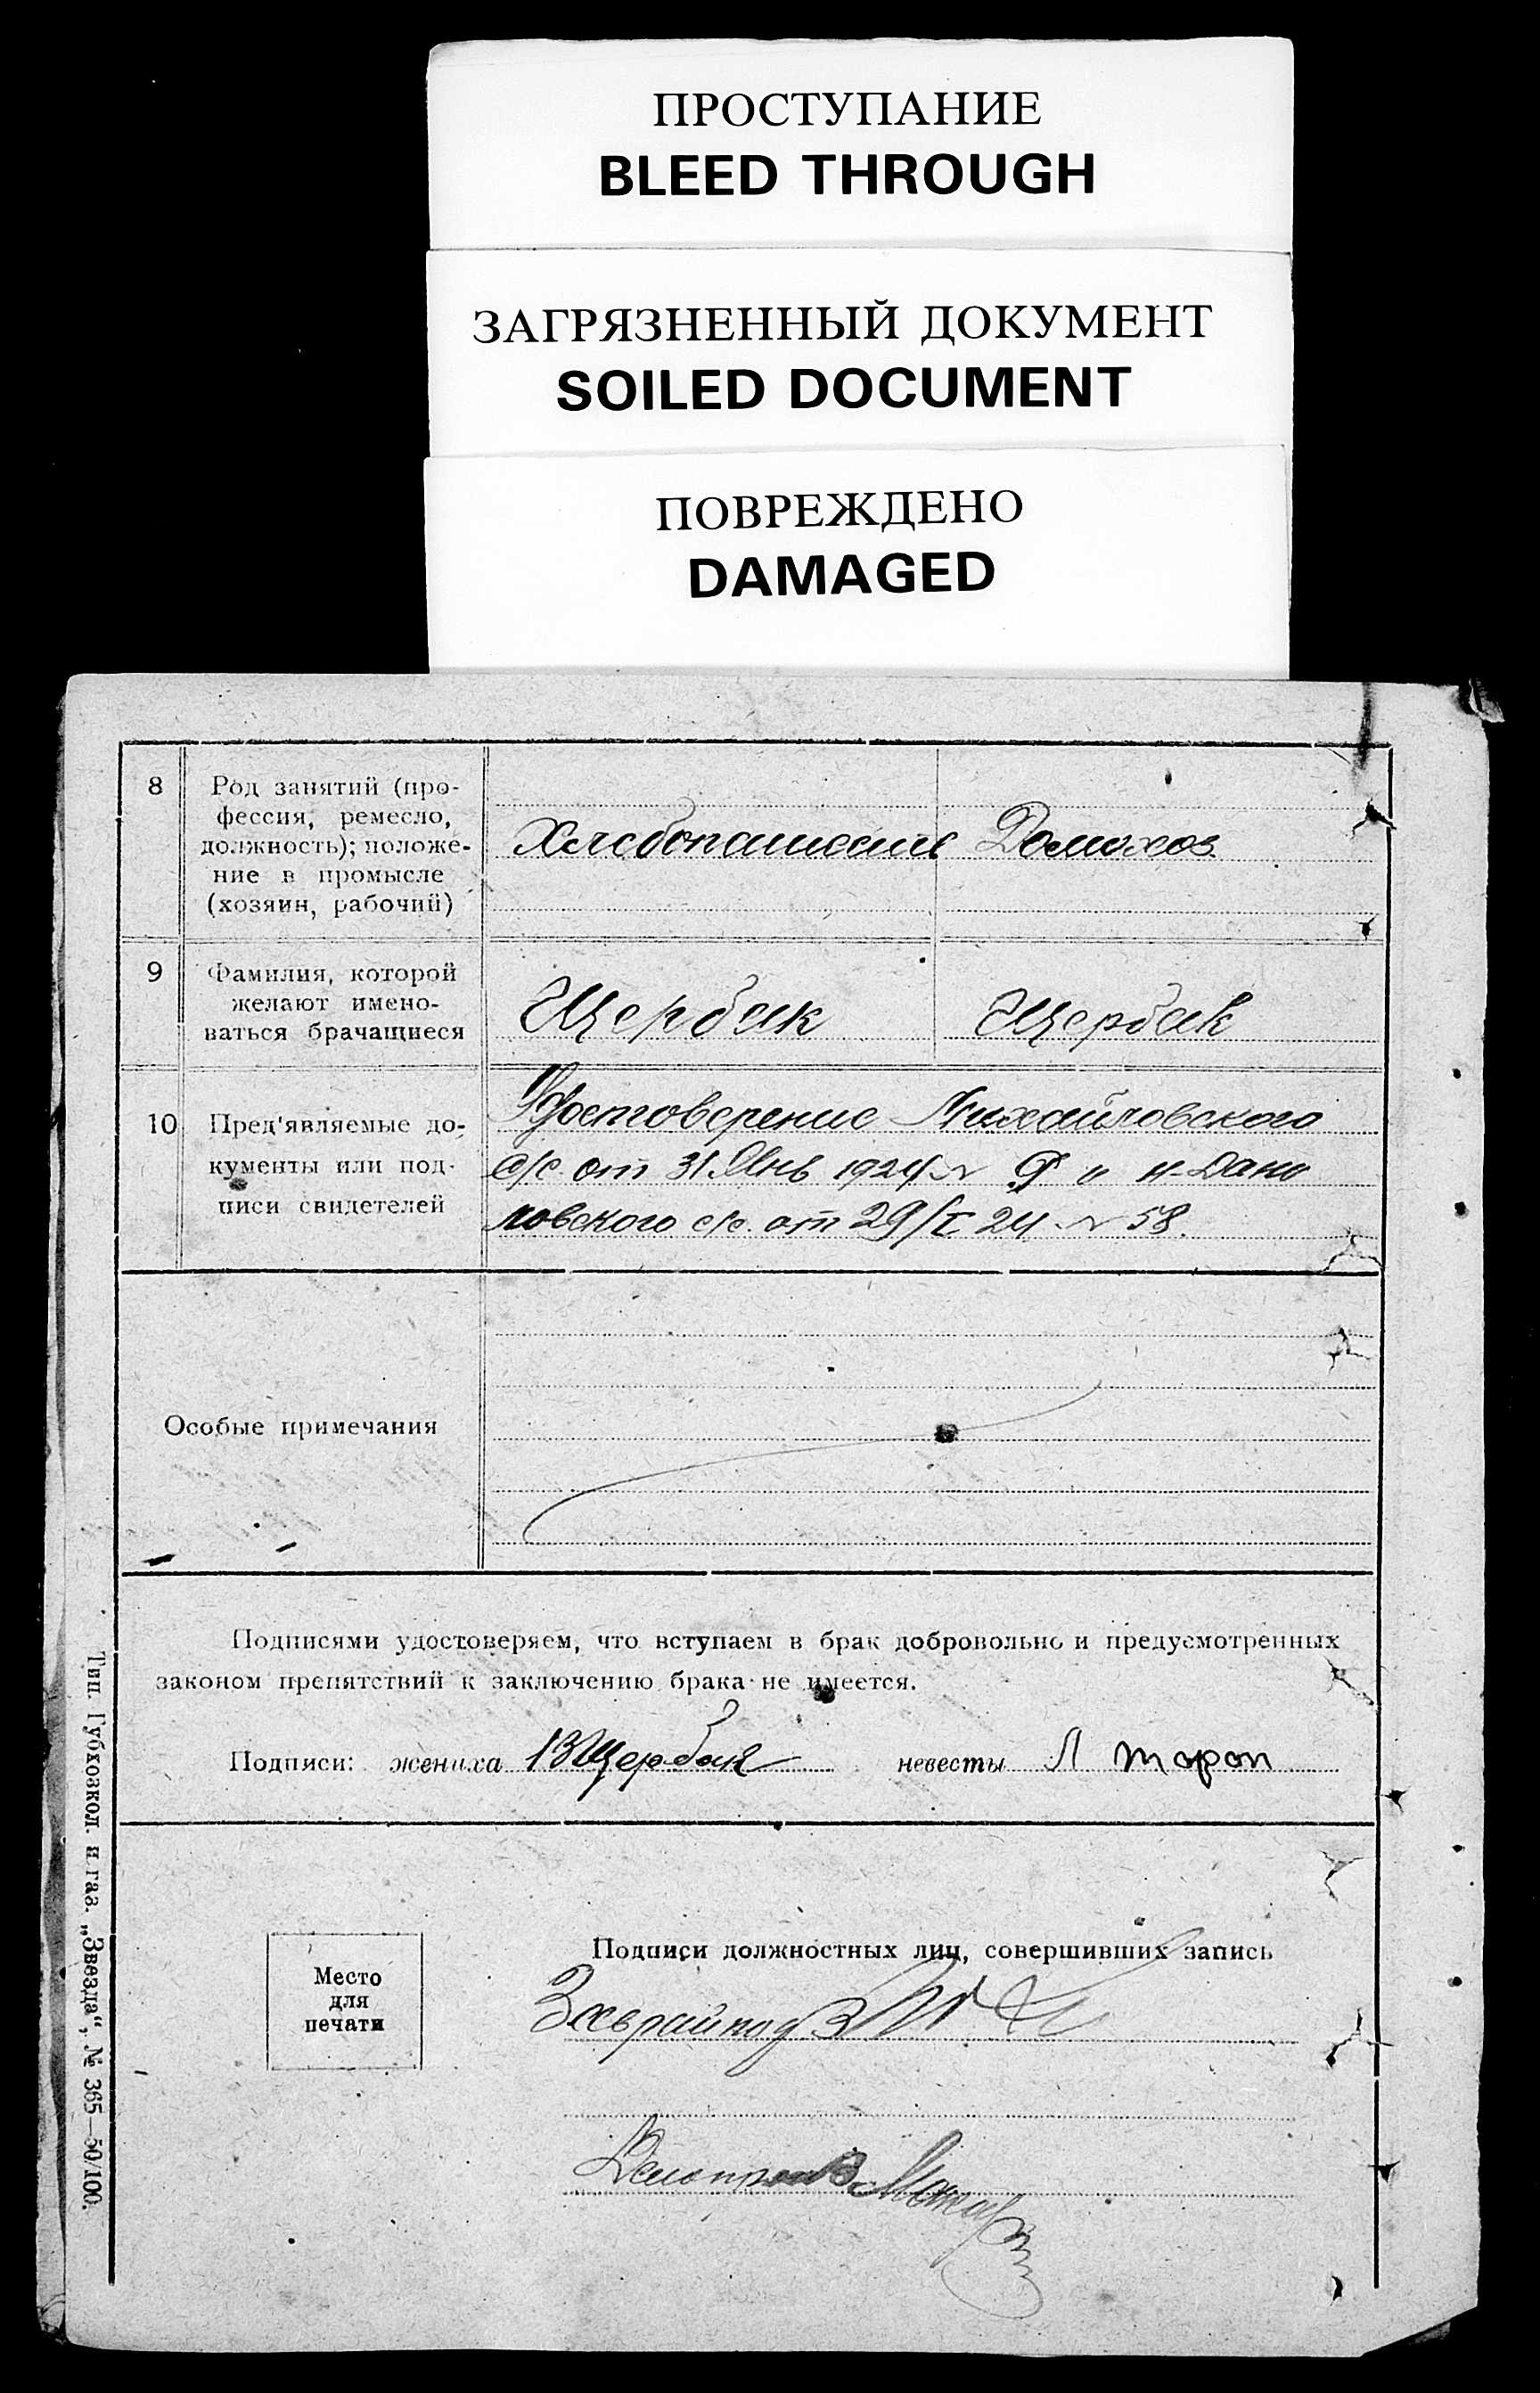 ПРОСТУПАНИЕ
BLEED THROUGH
ЗАГРЯЗНЕННЫЙ ДОКУМЕНТ
SOILED DOCUMENT
ПОВРЕЖДЕНО
DAMAGED
8 Род занятий (про-
фессия, ремесло,
должность); положе-
ние в промысле
(хозяин, рабочий)
Хлебопашест Домохоз.
9 Фамилия, которой
желают имено-
ваться брачащиеся
Щербак Щербак
10 Пред'являемые до-
кументы или под-
писи свидетелей
Удостоверение Михайловского
с/с от 31 Янв 1924 № и Н-Дани
ловского с/с. от 29/I 24 № 58.
Особые примечания
Подписями удостоверяем, что вступаем в брак добровольно и предусмотренных
законом препятствий к заключению брака не имеется.
Подписи: жениха Щербак невесты Л тороп
Место
для
печати
Подписи должностных лиц, совершивших запись
Делопроизв.
Тип. Губхозкол. и газ. „Звезда“, № 365—50/100.